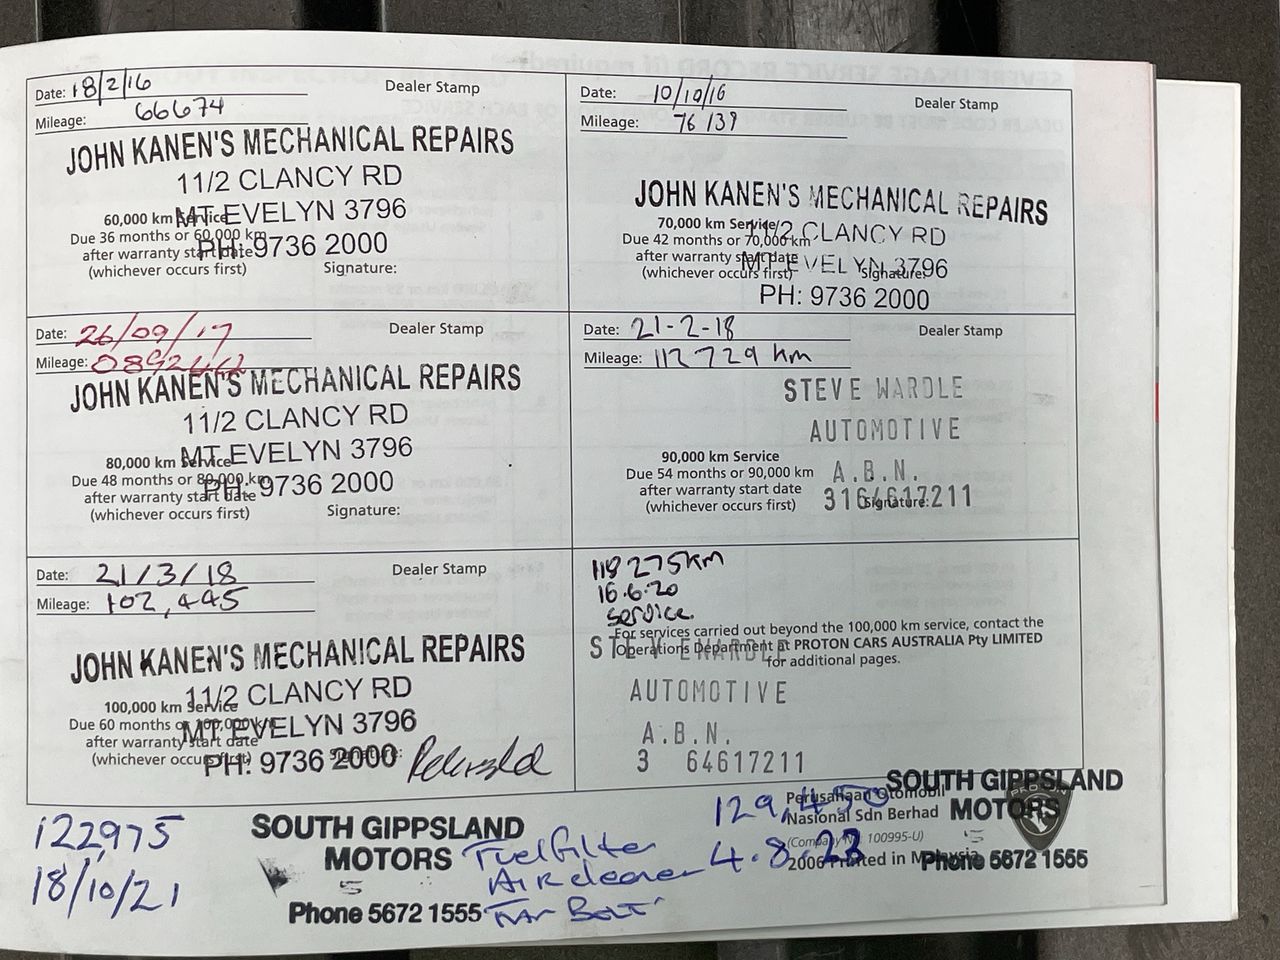 Date: 18/2/16
Dealer Stamp
Mileage: 66674
JOHN KANEN'S MECHANICAL REPAIRS
11/2 CLANCY RD
MT EVELYN 3796
PH: 9736 2000
60,000 km Service
Due 36 months or 60,000 km
after warranty start date
(whichever occurs first)
Signature:
Date: 10/10/16
Dealer Stamp
Mileage: 76139
JOHN KANEN'S MECHANICAL REPAIRS
11/2 CLANCY RD
MT EVELYN 3796
PH: 9736 2000
70,000 km Service
Due 42 months or 70,000 km
after warranty start date
(whichever occurs first)
Signature:
Date: 26/09/17
Dealer Stamp
Mileage:
JOHN KANEN'S MECHANICAL REPAIRS
11/2 CLANCY RD
MT EVELYN 3796
PH: 9736 2000
80,000 km Service
Due 48 months or 80,000 km
after warranty start date
(whichever occurs first)
Signature:
Date: 21-2-18
Dealer Stamp
Mileage: 112729 km
STEVE WARDLE
AUTOMOTIVE
A.B.N.
3164617211
90,000 km Service
Due 54 months or 90,000 km
after warranty start date
(whichever occurs first)
Signature:
Date: 21/3/18
Dealer Stamp
Mileage: 102,445
JOHN KANEN'S MECHANICAL REPAIRS
11/2 CLANCY RD
MT EVELYN 3796
PH: 9736 2000
100,000 km Service
Due 60 months or 100,000 km
after warranty start date
(whichever occurs first)
Signature:
118275km
16.6.20
service.
For services carried out beyond the 100,000 km service, contact the
Operations Department at PROTON CARS AUSTRALIA Pty LIMITED
for additional pages.
STEVE WARDLE
AUTOMOTIVE
A.B.N.
3 64617211
122,975
18/10/21
SOUTH GIPPSLAND
MOTORS
Phone 5672 1555
Fuel filter
Air cleaner
129,450
4.8.23
Perusahaan Otomobil
Nasional Sdn Berhad
(Company No. 100995-U)
2006 Printed in Malaysia
SOUTH GIPPSLAND
MOTORS
Phone 5672 1555